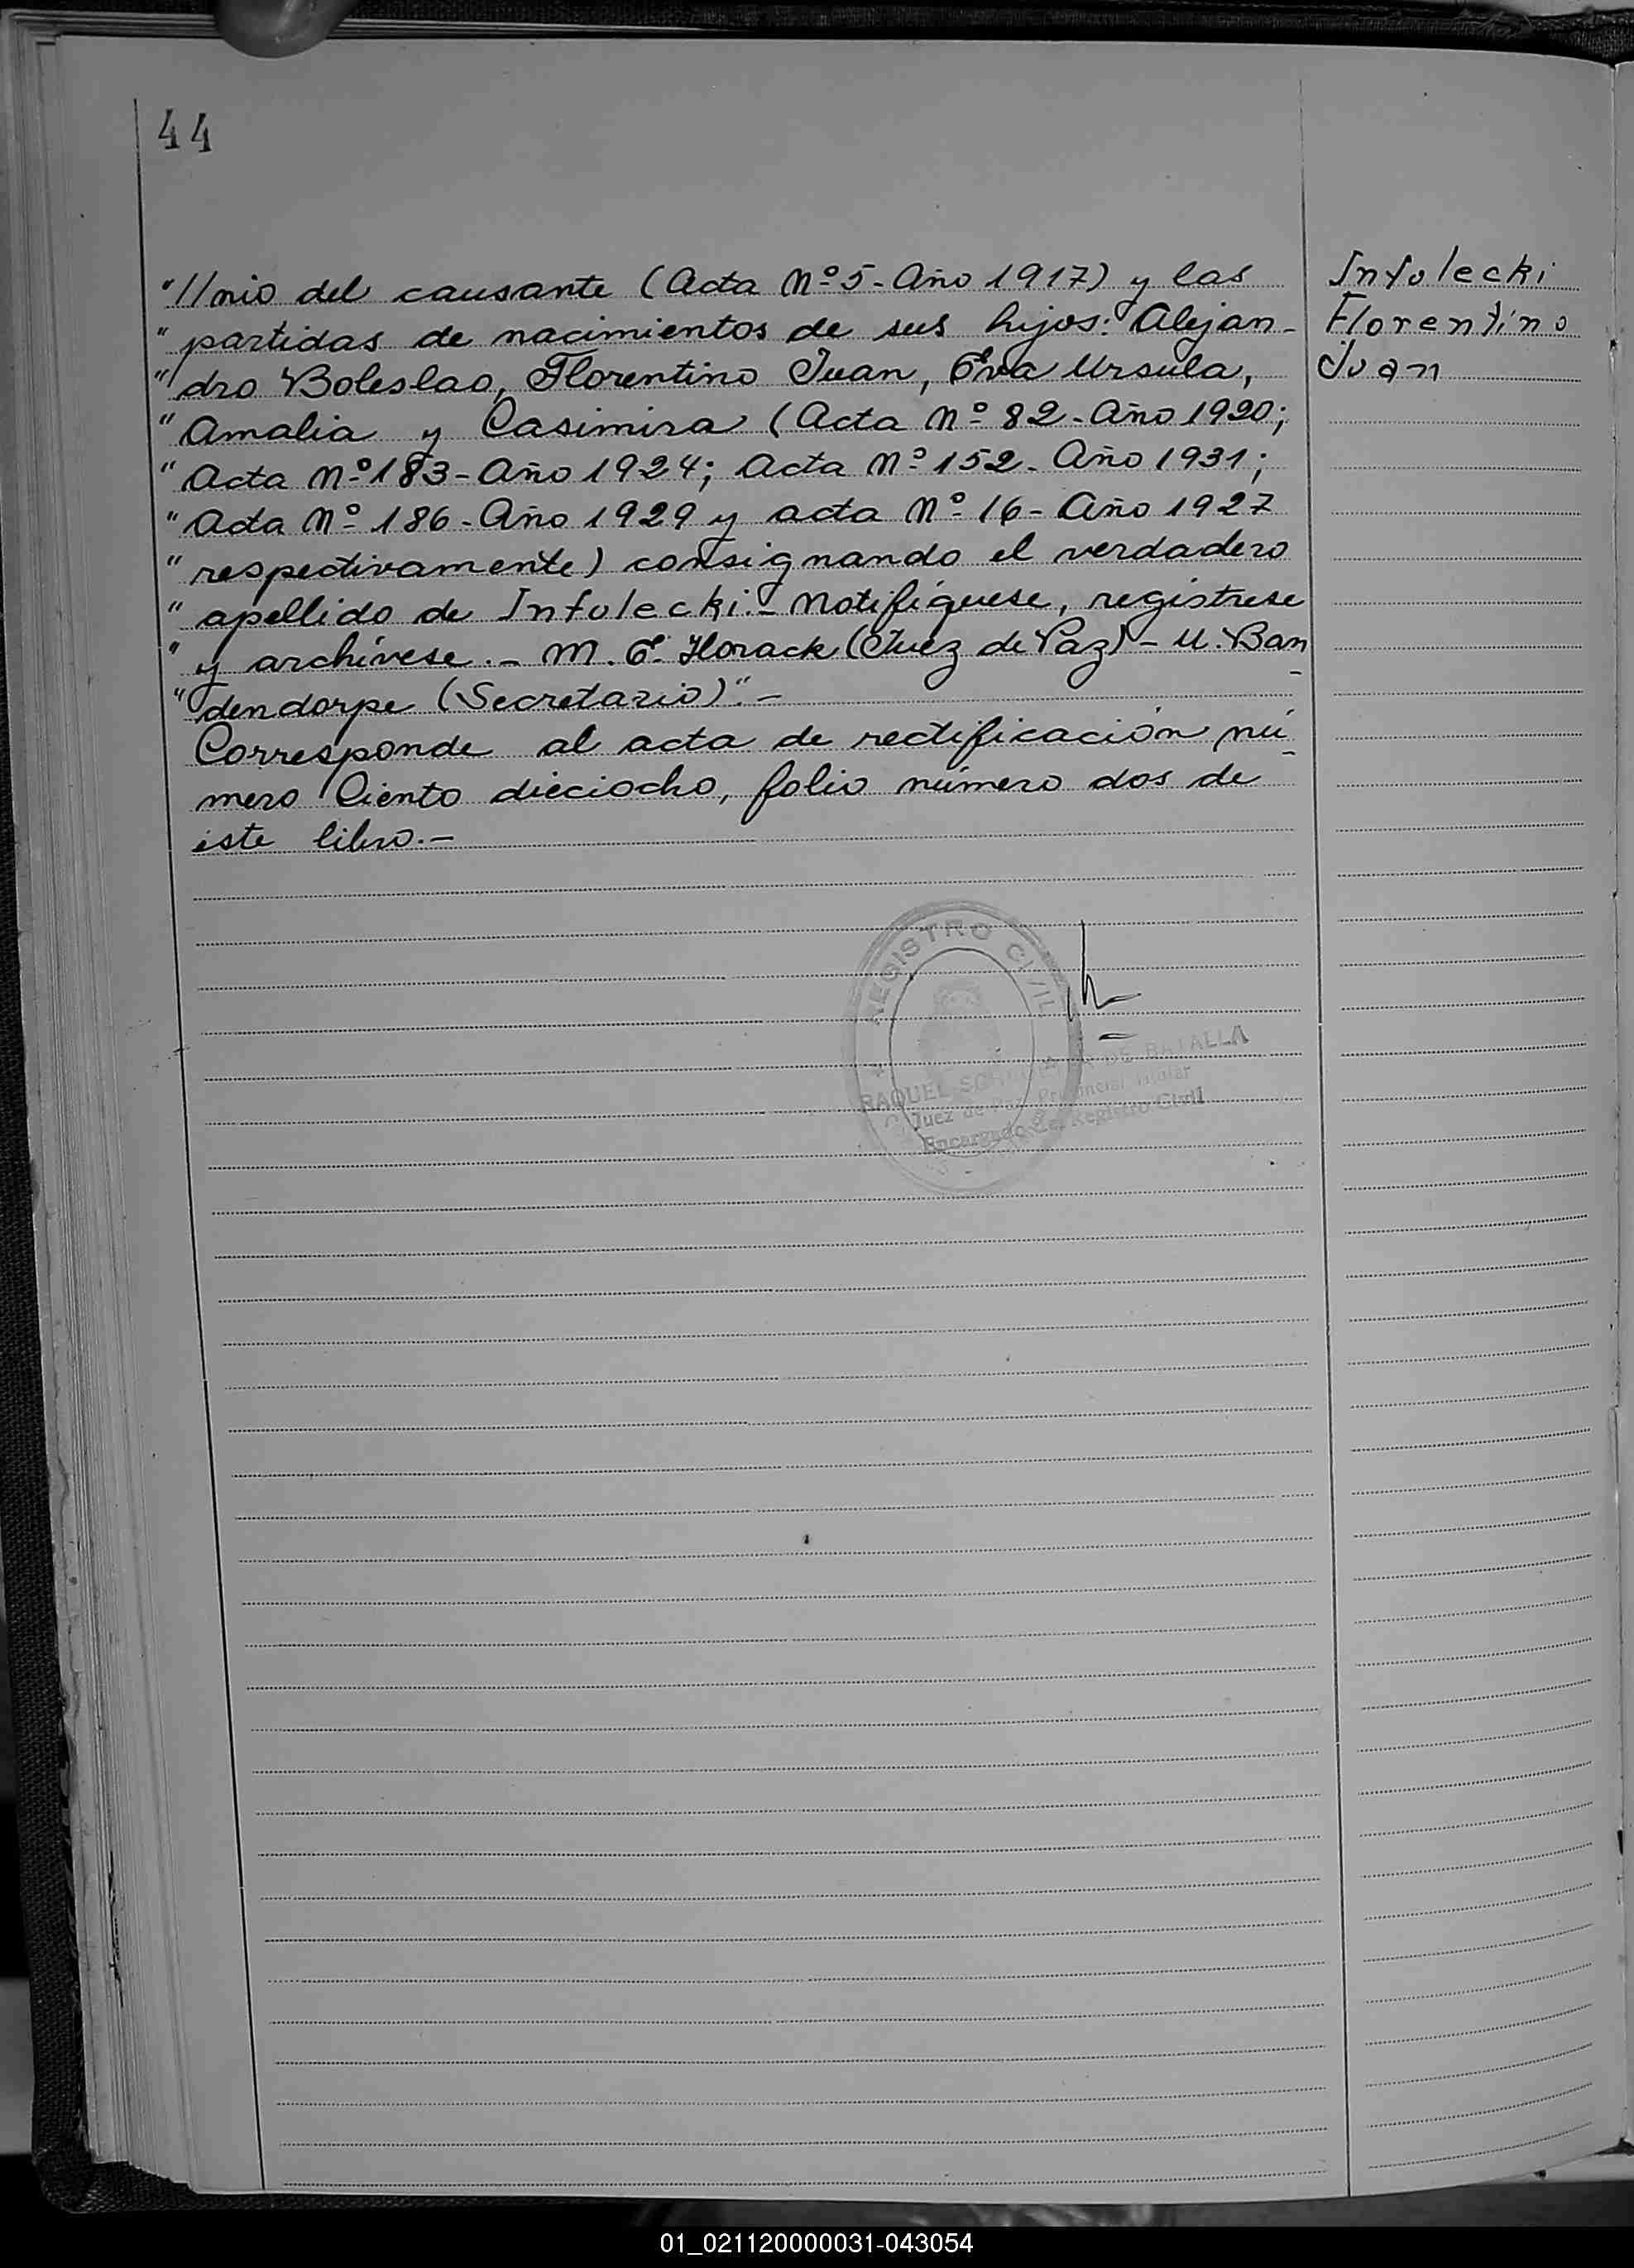 44
"//nio del causante (Acta Nº 5 - Año 1917) y las
Intolecki
"partidas de nacimientos de sus hijos: Alejan-
Florentino
"dro Boleslao, Florentino Juan, Eva Ursula,
Juan
"Amalia y Casimira (Acta Nº 82 - Año 1920;
"Acta Nº 183 - Año 1924; Acta Nº 152 - Año 1931;
"Acta Nº 186 - Año 1929 y acta Nº 16 - Año 1927
"respectivamente) consignando el verdadero
"apellido de Intolecki.- Notifíquese, regístrese
"y archívese.- M. E. Horack (Juez de Paz) - U. Ban
"dendorpe (Secretario)".-
Corresponde al acta de rectificación nú-
mero Ciento dieciocho, folio número dos de
este libro.-
REGISTRO CIVIL
RAQUEL DE BATALLA
Juez de Paz Provincial Titular
Encargado del Registro Civil
01_021120000031-043054